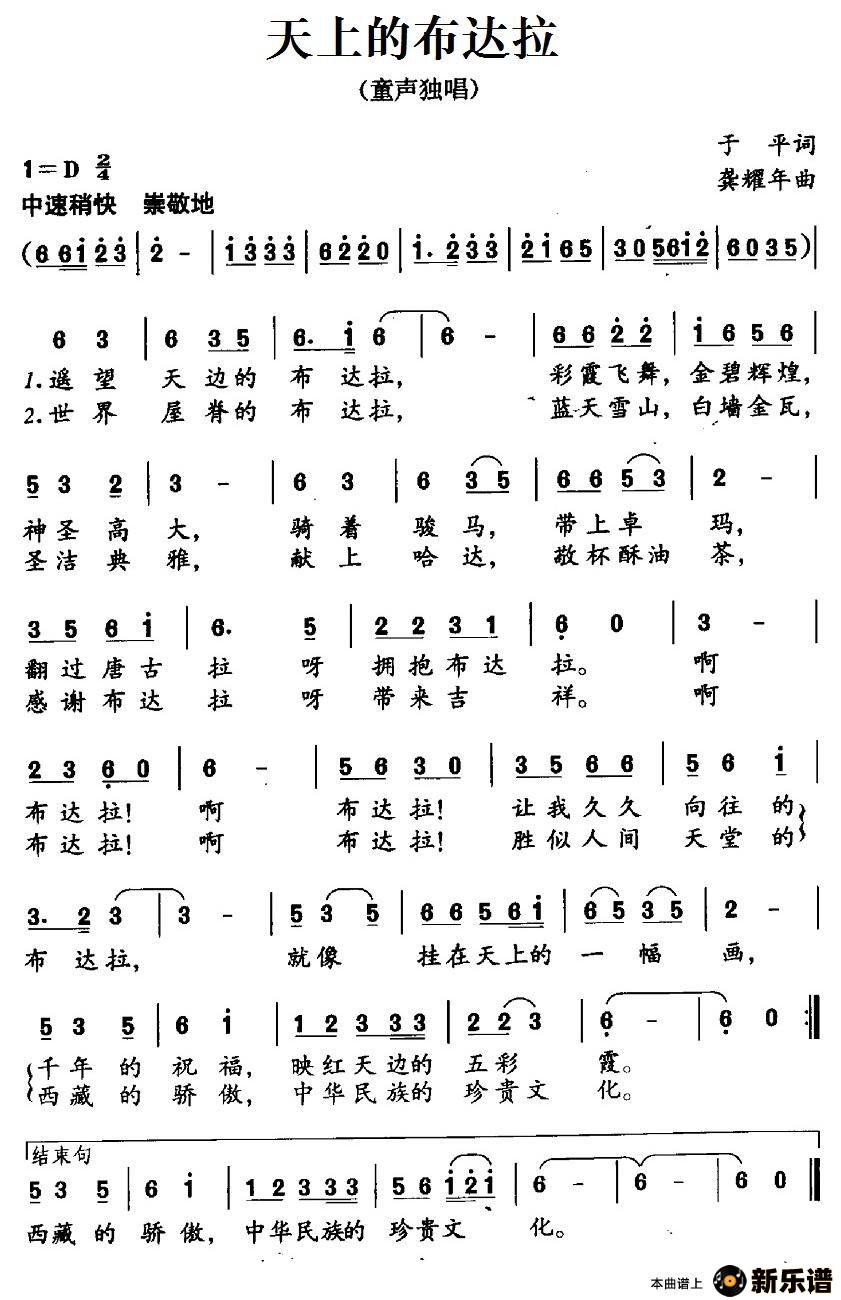 天上的布达拉
（童声独唱）
于 平词
1=D 2/4
龚耀年曲
中速稍快 崇敬地
(6 6i23 | 2 - | i333 | 6220 | i. 233 | 2i65 | 30 56i2 | 6035)|
6 3 | 6 35 | 6. i 6 | 6 - | 6622 | i656 |
1.遥望 天边的 布达拉， 彩霞飞舞，金碧辉煌，
2.世界 屋脊的 布达拉， 蓝天雪山，白墙金瓦，
5 3 2 | 3 - | 6 3 | 6 35 | 6653 | 2 - |
神圣高大， 骑着 骏马， 带上卓 玛，
圣洁典雅， 献上 哈达， 敬杯酥油茶，
356i | 6. 5 | 2231 | 6 0 | 3 - |
翻过唐古拉 呀 拥抱布达 拉。 啊
感谢布达拉 呀 带来吉 祥。 啊
2360 | 6 - | 5630 | 3566 | 56 i |
布达拉！ 啊 布达拉！ 让我久久 向往的
布达拉！ 啊 布达拉！ 胜似人间 天堂的
3. 2 3 | 3 - | 53 5 | 6656i | 6535 | 2 - |
布 达拉， 就像 挂在天上的 一幅 画，
53 5 | 6 i | 12333 | 223 | 6 - | 6 0 :|
千年的祝福，映红天边的 五彩 霞。
西藏的骄傲，中华民族的 珍贵文 化。
结束句
53 5 | 6 i | 12333 | 56i2i | 6 - | 6 - | 6 0 |
西藏的骄傲，中华民族的 珍贵文 化。
本曲谱上 新乐谱